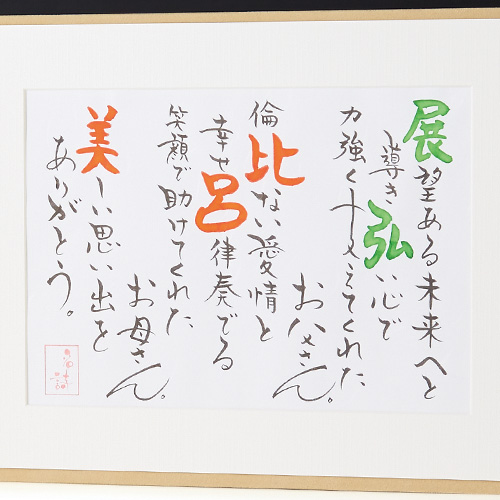 展望ある未来へと
導き弘い心で
力強く支えてくれた
お父さん。
倫比ない愛情と
幸せ呂律奏でる
笑顔で助けてくれた
お母さん。
美しい思い出を
ありがとう。